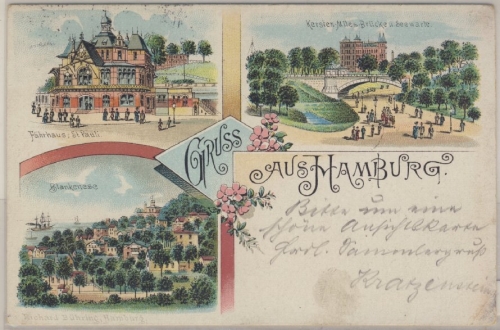 Fährhaus, St. Pauli
Kersten Miles-Brücke u. Seewarte
GRUSS
AUS HAMBURG.
Blankenese
Bitte um eine
schöne Ansichtskarte
Hrdl. Sammlergruß
Kratzenstein
Hamburg